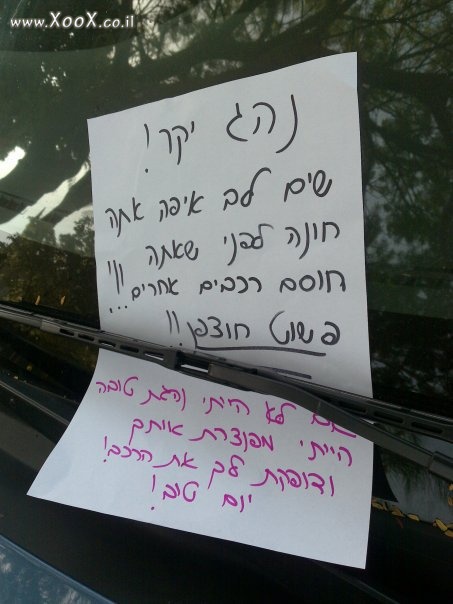 www.XooX.co.il
נהג יקר!
שים לב איפה אתה
חונה לפני שאתה
חוסם רכבים אחרים!!!
פשוט חוצפן!!
לא הייתי נהגת טובה
הייתי מפנצרת אותך
ודופקת לך את הרכב!
יום טוב!